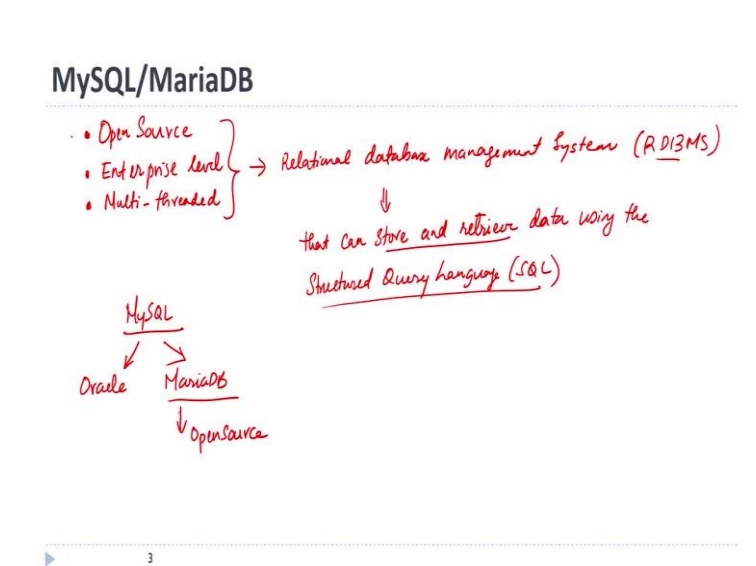 MySQL/MariaDB
• Open Source
• Enterprise level
• Multi-threaded
→ Relational database management System (RDBMS)
⇓
that can store and retrieve data using the
Structured Query Language (SQL)
MySQL
Oracle MariaDB
↓ OpenSource
3